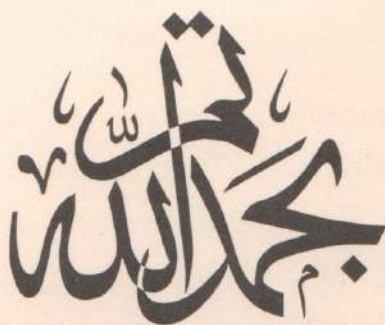 تم بحمد الله